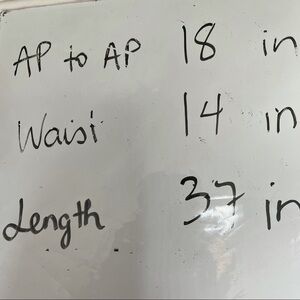 AP to AP 18 in
Waist 14 in
Length 37 in